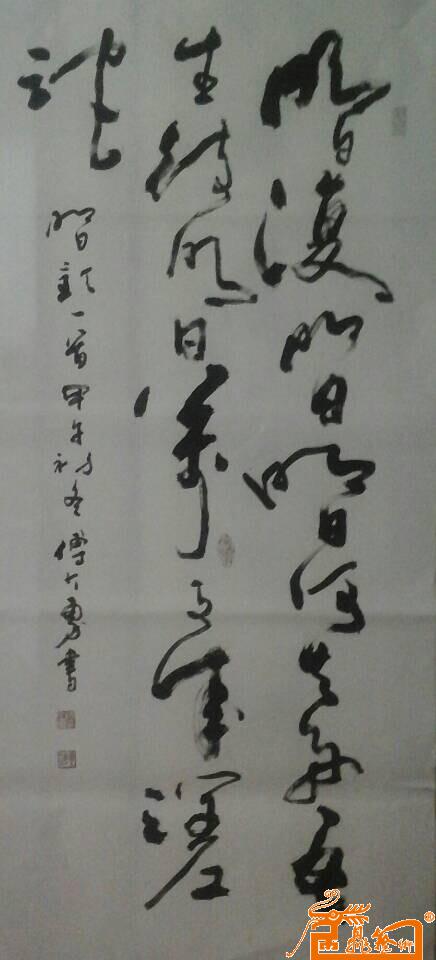 明日復明日明日何其多我
生待明日萬事成蹉
跎
明日歌一首甲午初冬傅大勇書